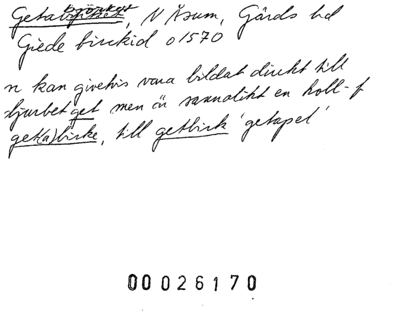 Getabjörket, N Åsum, Gärds hd
Giede birckid o 1570
n kan givetvis vara bildat direkt till
djurbet get men är sannolikt en koll-f
get(a)birke, till getbirk 'getapel'
00026170